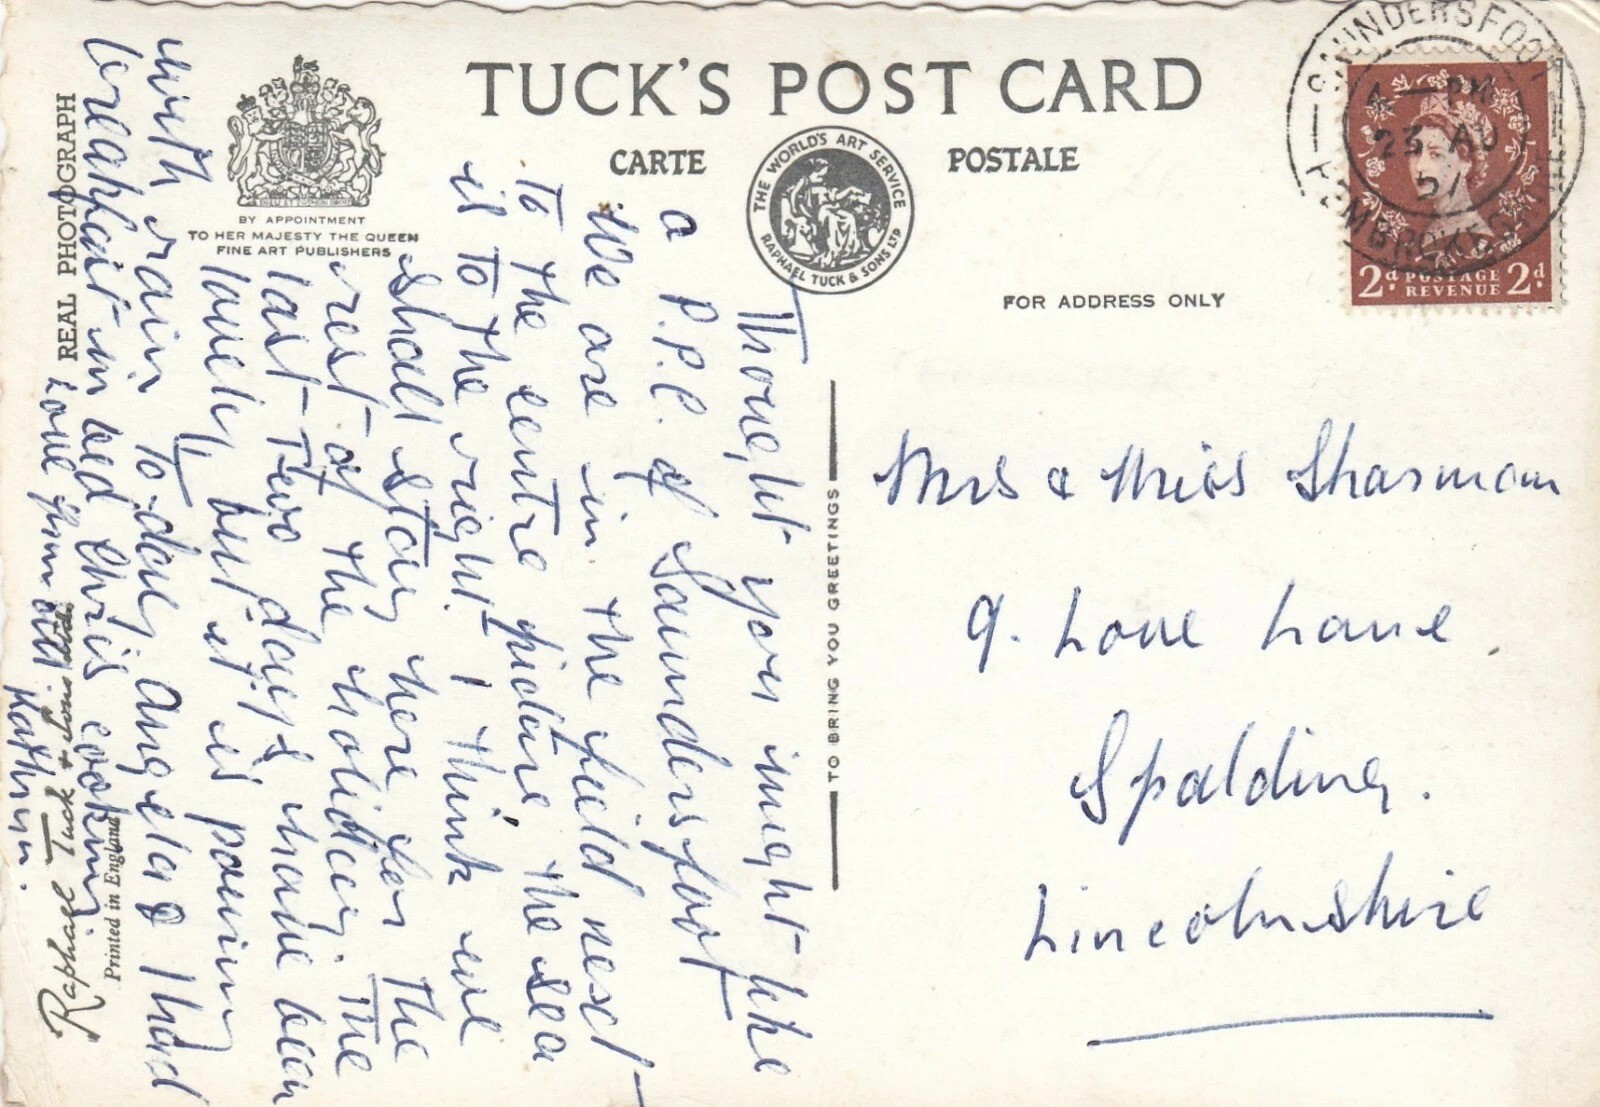 TUCK'S POST CARD
CARTE POSTALE
THE WORLD'S ART SERVICE
RAPHAEL TUCK & SONS LTD
BY APPOINTMENT
TO HER MAJESTY THE QUEEN
FINE ART PUBLISHERS
FOR ADDRESS ONLY
REAL PHOTOGRAPH
Raphael Tuck & Sons Ltd.
Printed in England
TO BRING YOU GREETINGS
SAUNDERSFOOT
4 - PM
23 AU
PEMBROKESHIRE
2d POSTAGE REVENUE 2d
Thought you might like
a P.P.C. of Saundersfoot
We are in the field next
to the centre picture the sea
is to the right. I think we
shall stay here for the
rest of the holiday. The
last two days have been
lovely but it is pouring
with rain to-day Angela & I had
breakfast in bed Chris cooking
Love from all
Kathryn.
Mrs & Miss Sharman
9. Love Lane.
Spalding.
Lincolnshire